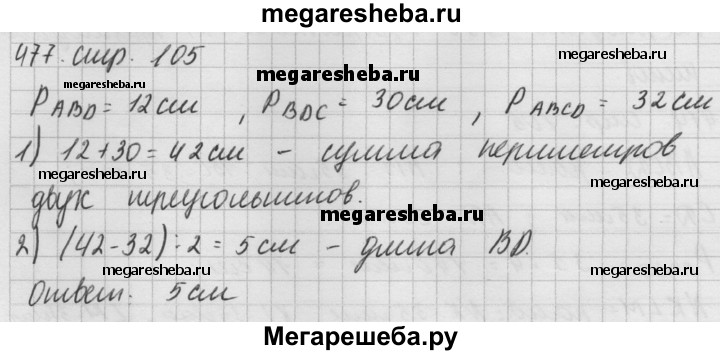 megaresheba.ru
477. стр. 105
megaresheba.ru
megaresheba.ru
P ABD = 12 см , P BDC = 30 см , P ABCD = 32 см
1) 12 + 30 = 42 см - сумма периметров
megaresheba.ru
megaresheba.ru
двух треугольников.
megaresheba.ru
2) (42 - 32) : 2 = 5 см - длина BD.
megaresheba.ru
megaresheba.ru
Ответ. 5 см
Мегарешеба.ру